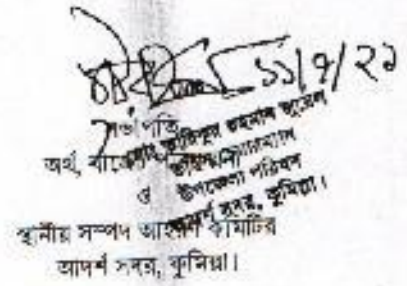 ১১/৭/২১
সভাপতি
অর্থ, বাজেট
ভাইস চেয়ারম্যান
ও
উপজেলা পরিষদ
আদর্শ সদর, কুমিল্লা।
স্থানীয় সম্পদ আহরণ কমিটির
আদর্শ সদর, কুমিল্লা।